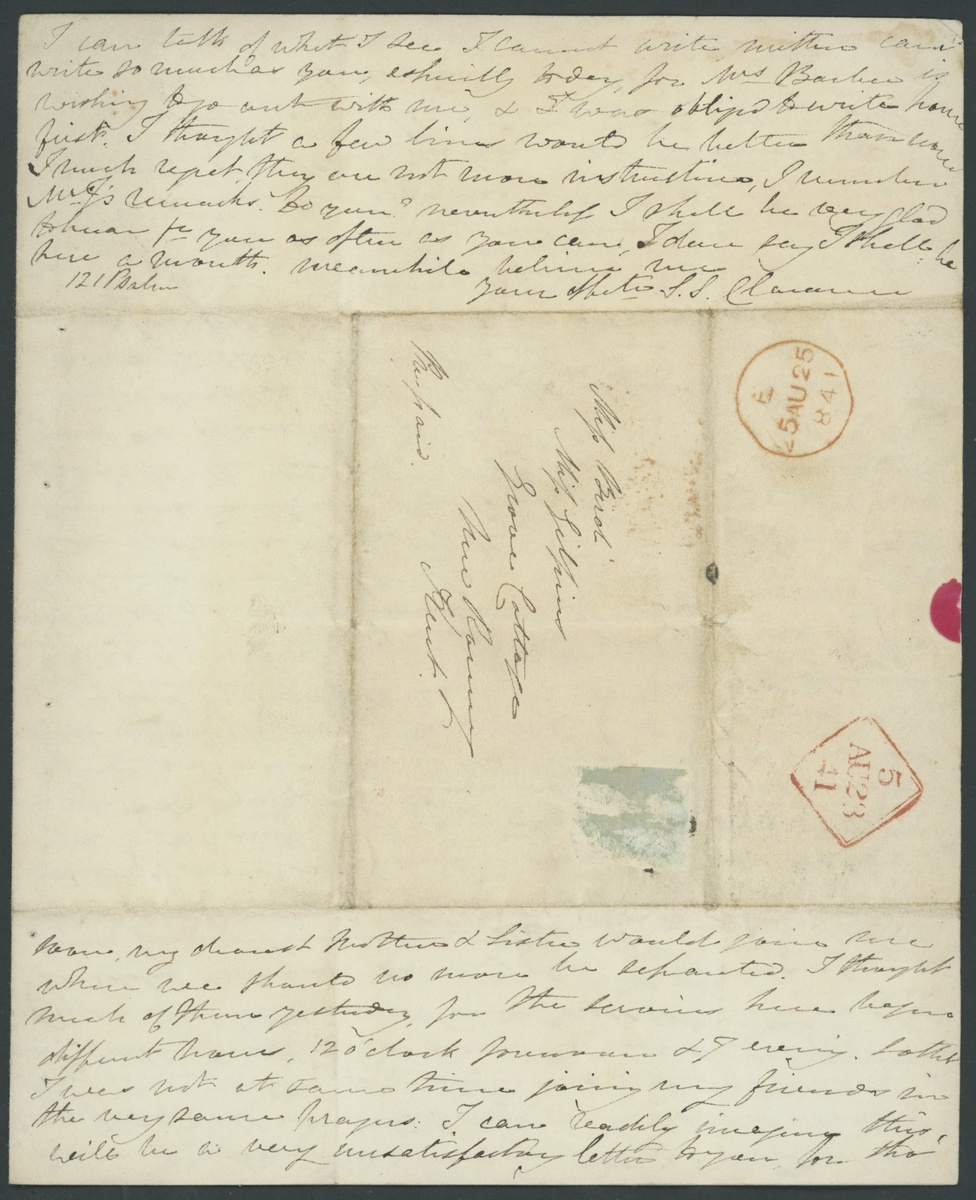 I can talk of what I see I cannot write neither can I
write so much as you, especially today, for Mrs Barber is
wishing to go out with me, & I was obliged to write home
first. I thought a few lines would be better than none
I much regret they are not more instructive, I remember
Mr J's remarks. To you? nevertheless I shall be very glad
to hear fm you as often as you can, I dare say I shall be
here a month. meanwhile believe me
121 Psalm
your affecte S. S.
Prepaid.
Miss Bird
Miss Gilpins
Grove Cottage
New Romney
Kent.
E
25 AU 25
1841
5
AU 23
41
home, my dearest Mother & Sister would join me
where we should no more be separated. I thought
much of them yesterday, for the services here begin
different hours, 12 o'clock forenoon & 7 evening. So that
I was not at same time joining my friends in
the very same prayers: I can readily imagine this,
will be a very unsatisfactory letter to you, for tho'